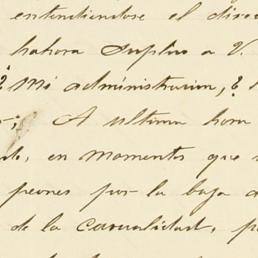 entendiendose el
hahora suplico a V.
Mi administracion, é
A ultima hora
en momentos que
peones por la baja
de la casualidad,